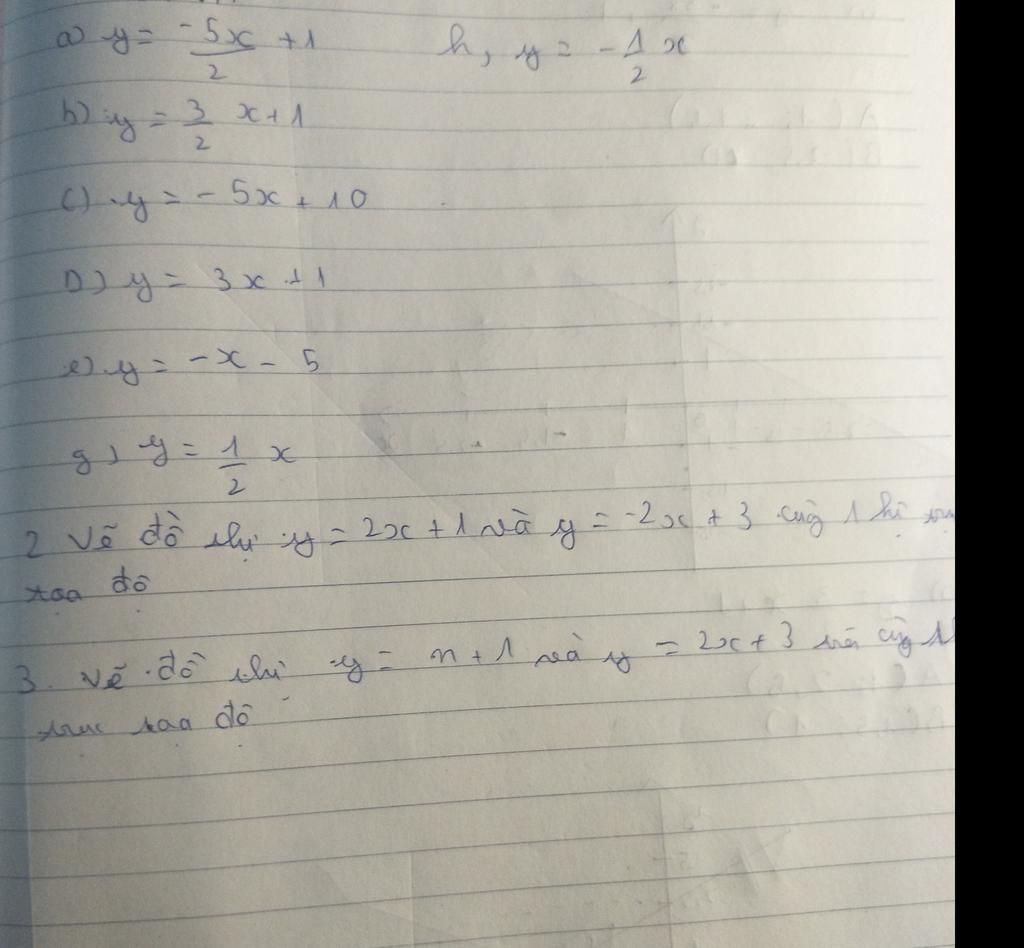 a) y = -5x/2 + 1 h, y = -1/2 x
b) y = 3/2 x + 1
c) y = -5x + 10
D) y = 3x + 1
e) y = -x - 5
g) y = 1/2 x
2 Vẽ đồ thị y = 2x + 1 và y = -2x + 3 cùng 1 hệ
toạ độ
3. Vẽ đồ thị y = n + 1 và y = 2x + 3 trên cùng 1
trục toạ độ